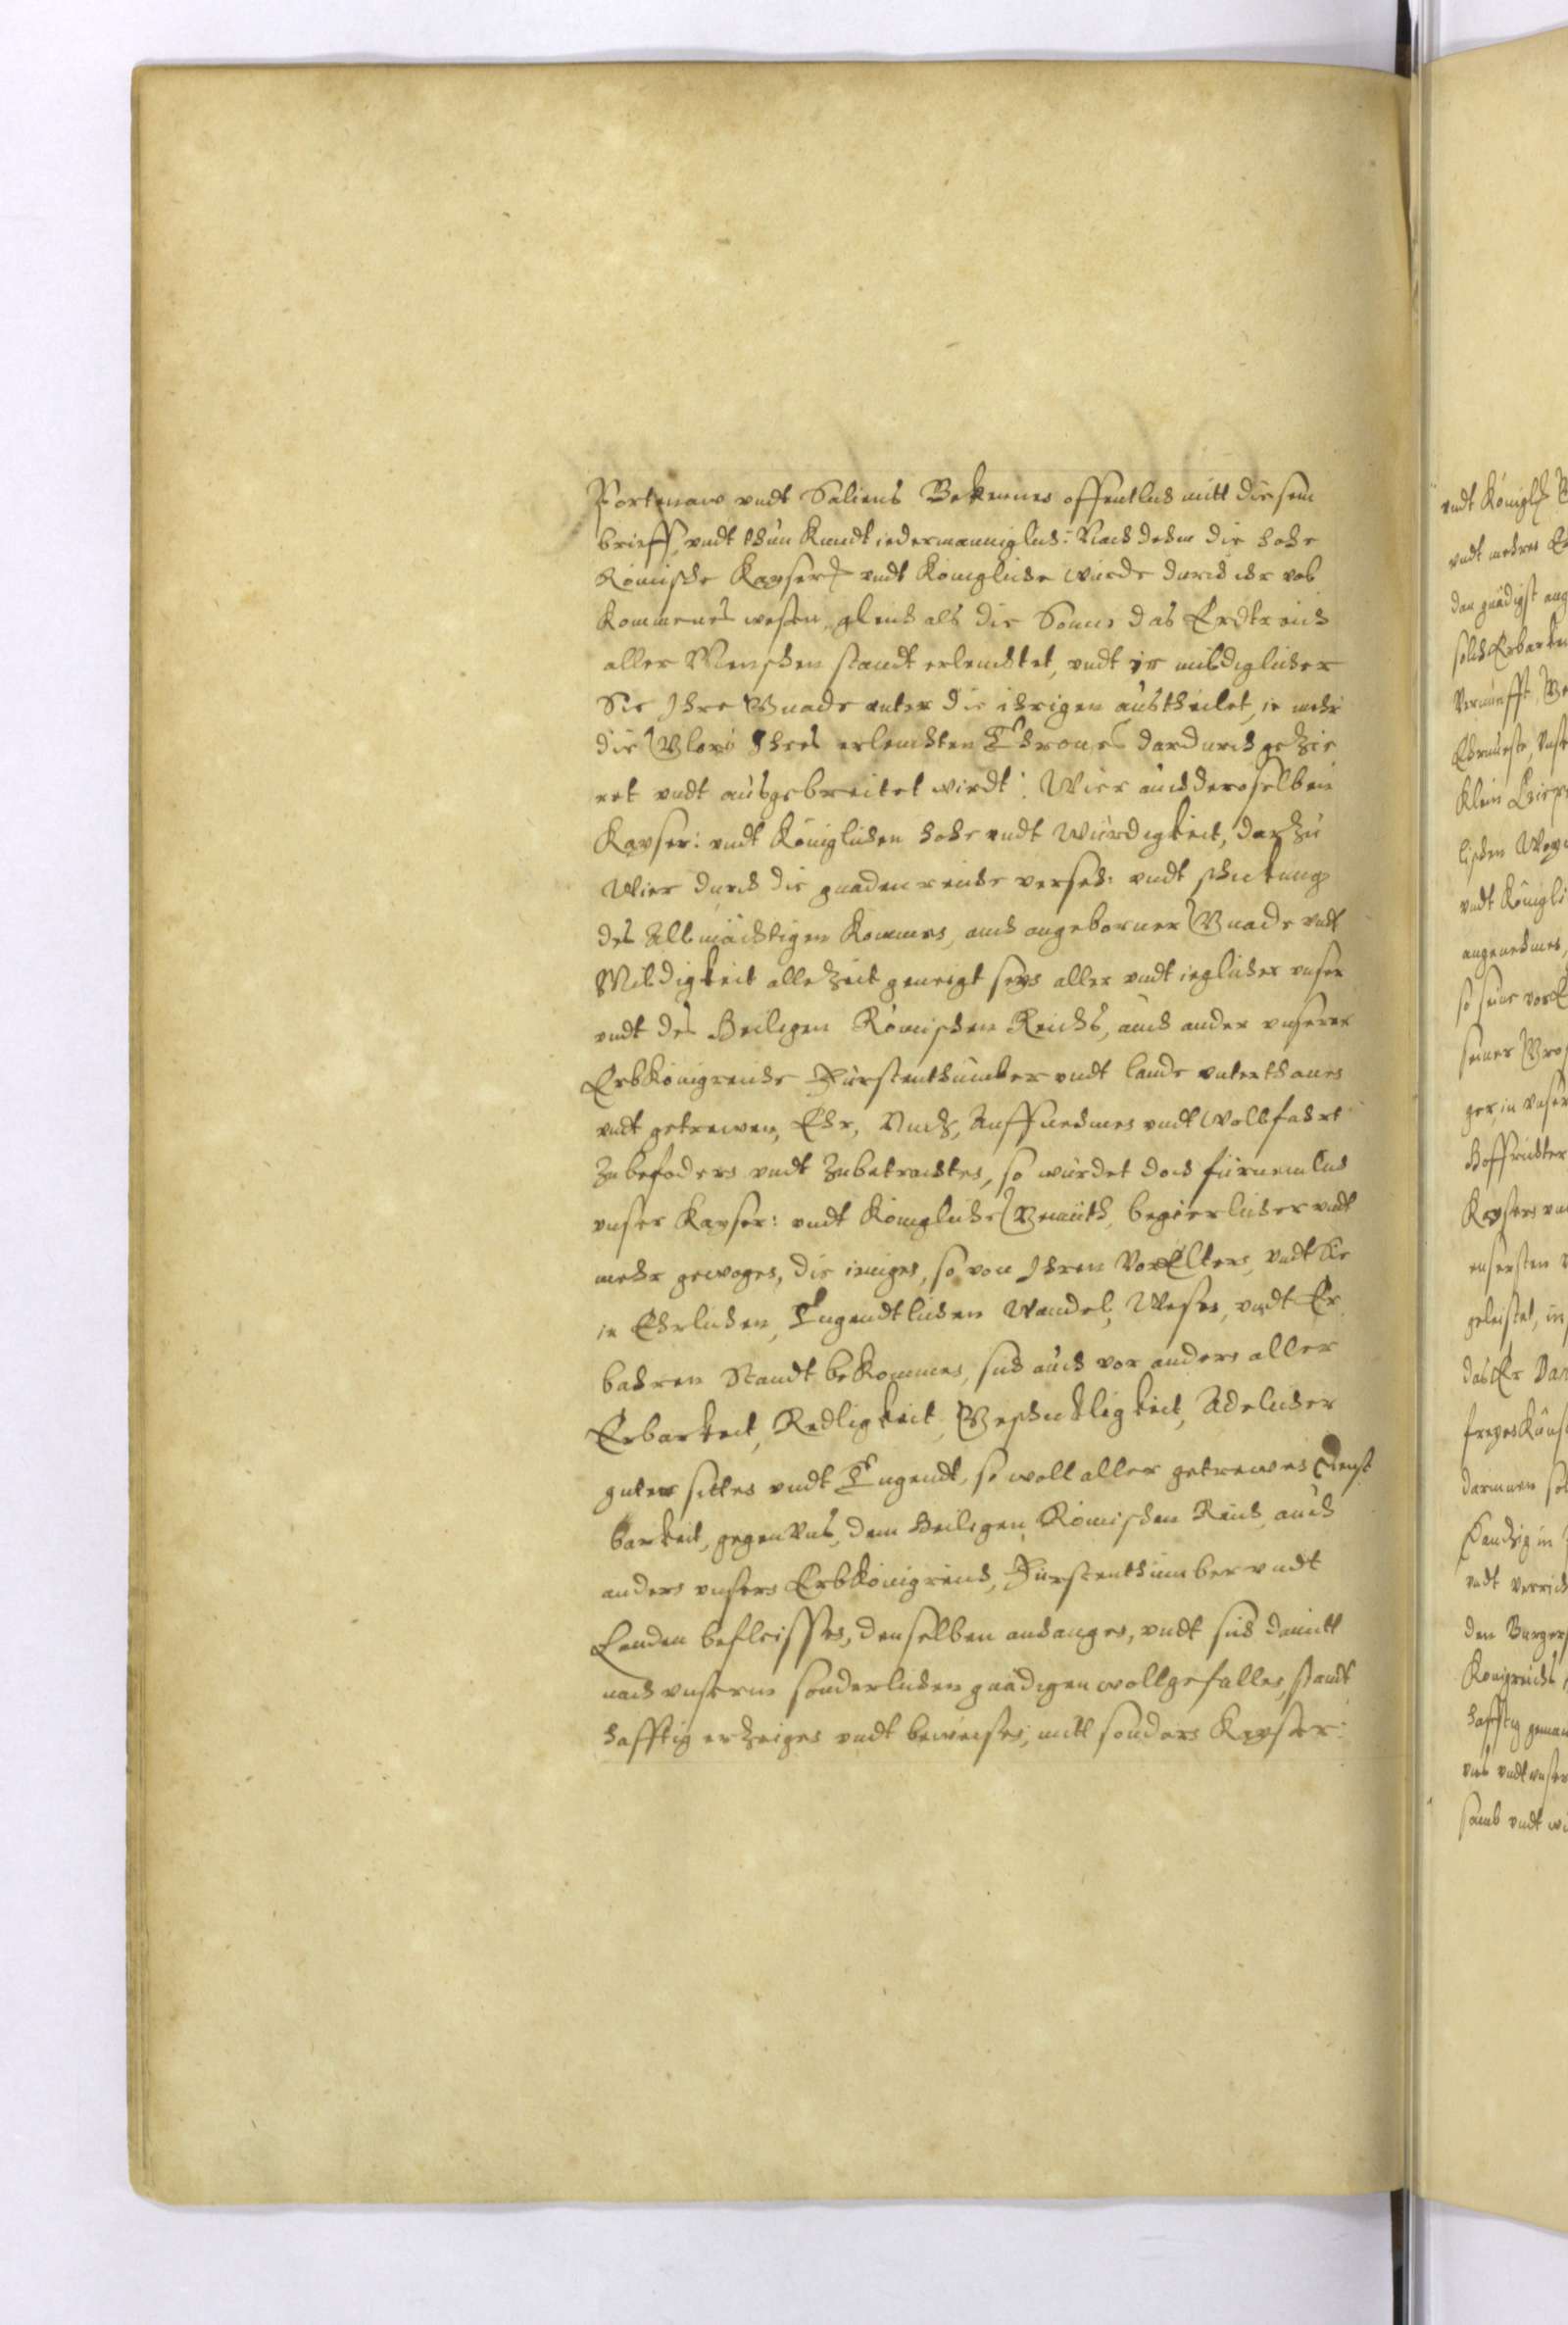 Portenaw vndt Saliens Bekennen offentlich mitt diesem
brieff, vndt thun kundt iedermanniglich: Nach dehm die hohe
Römische Kayser: vndt Königliche würde durch ihr vol
kommenes wesen, gleich als die Sonne das Erdtreich
aller Menschen standt erleuchtet, vndt ie mildiglicher
Sie Ihre Gnade unter die ihrigen austheilet, ie mehr
die Glori Ihres erleuchten Thrones dardurch gezie
ret vndt ausgebreitet wirdt: Wier auch deroselben
Kayser: vndt Königlichen hohe vndt Würdigkeit, darzu
Wier durch die gnadenreiche verseh: vndt schickung
des Allmächtigen kommen, auch angeborner Gnade vndt
Mildigkeit allezeit geneigt seyn aller vndt ieglicher vnser
vndt des Heiligen Römischen Reichs, auch ander vnserer
Erbkönigreiche Fürstenthumber vndt lande vnterthanen
vndt getrewen, Ehr, Nutz, Auffnehmen vndt wollfahrt
zubefodern vndt zubetrachten, so würdet doch fürnemlich
vnser Kayser: vndt Königliche Gemüth, begierlicher vndt
mehr gewogen, die ienigen, so von Ihren VorEltern, vndt Sie
in Ehrlichen, Tugendtlichen Wandel, Wesen, vndt Er
bahren Standt bekommen, sich auch vor andern aller
Erbarkeit, Redligkeit, Geschickligkeit, Adelicher
guter sitten vndt Tugendt, so woll aller getrewen Dienst
barkeit, gegen Vns, dem Heiligen Römischen Reich, auch
andern vnsern Erbkönigreich, Fürstenthumber vndt
Landen befleissen, denselben anhangen, vndt sich damitt
nach vnserm sonderlichen gnädigen wollgefallen, standt
hafftig erzeigen vndt beweisen, mitt sondern Kayser:
vndt Königl:
vndt mehren
dan gnädigst
solch Erbarkei
Vernunfft,
Klein
vndt Königli
angenehmen,
so seine vorE
seiner
ger, in vnser
Hoffrichter
geleistet, in
das Er
freyes
vndt
den Burger
Königreichs
hafftig
vns vndt vnser
samb vndt